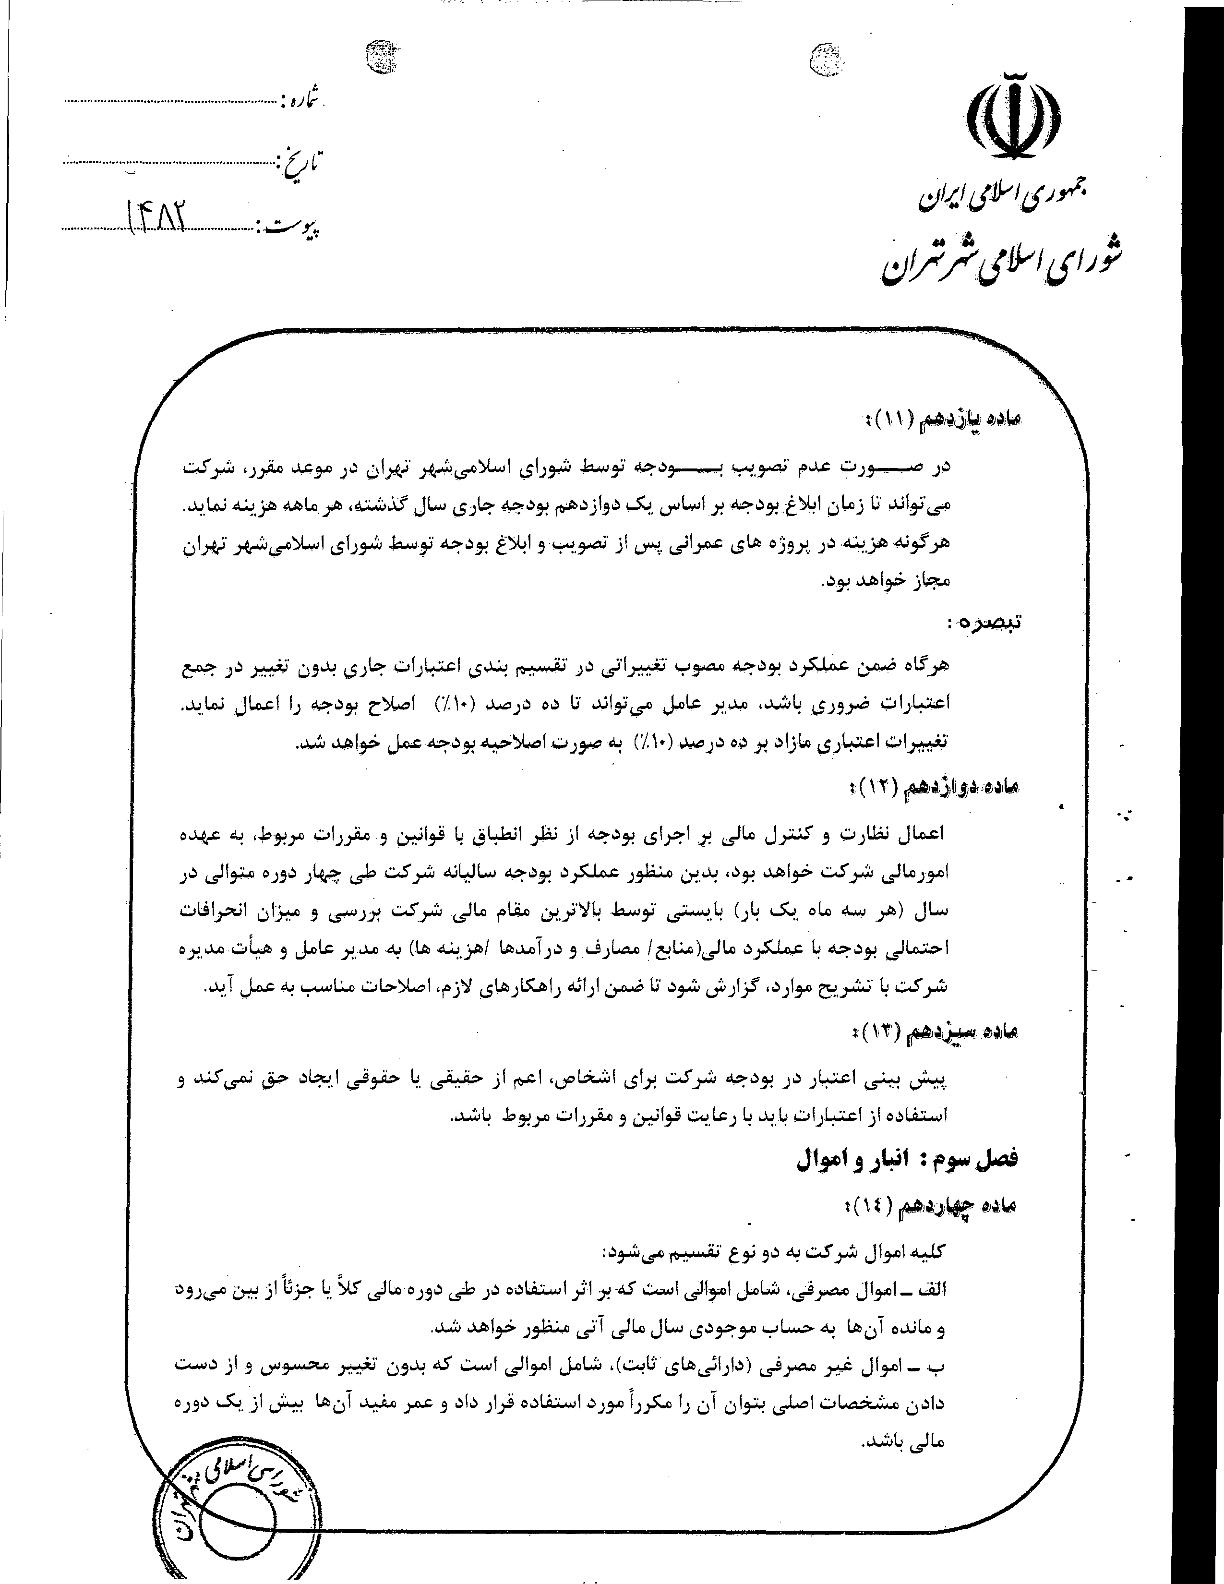 جمهوری اسلامی ایران
شورای اسلامی شهر تهران
شماره :
تاریخ :
پیوست : ۱۴۸۲
ماده یازدهم (۱۱):
در صورت عدم تصویب بودجه توسط شورای اسلامی‌شهر تهران در موعد مقرر، شرکت
می‌تواند تا زمان ابلاغ بودجه بر اساس یک دوازدهم بودجه جاری سال گذشته، هر ماهه هزینه نماید.
هرگونه هزینه در پروژه های عمرانی پس از تصویب و ابلاغ بودجه توسط شورای اسلامی‌شهر تهران
مجاز خواهد بود.
تبصره :
هرگاه ضمن عملکرد بودجه مصوب تغییراتی در تقسیم بندی اعتبارات جاری بدون تغییر در جمع
اعتبارات ضروری باشد، مدیر عامل می‌تواند تا ده درصد (۱۰٪) اصلاح بودجه را اعمال نماید.
تغییرات اعتباری مازاد بر ده درصد (۱۰٪) به صورت اصلاحیه بودجه عمل خواهد شد.
ماده دوازدهم (۱۲):
اعمال نظارت و کنترل مالی بر اجرای بودجه از نظر انطباق با قوانین و مقررات مربوط، به عهده
امورمالی شرکت خواهد بود، بدین منظور عملکرد بودجه سالیانه شرکت طی چهار دوره متوالی در
سال (هر سه ماه یک بار) بایستی توسط بالاترین مقام مالی شرکت بررسی و میزان انحرافات
احتمالی بودجه با عملکرد مالی(منابع/ مصارف و درآمدها /هزینه ها) به مدیر عامل و هیأت مدیره
شرکت با تشریح موارد، گزارش شود تا ضمن ارائه راهکارهای لازم، اصلاحات مناسب به عمل آید.
ماده سیزدهم (۱۳):
پیش بینی اعتبار در بودجه شرکت برای اشخاص، اعم از حقیقی یا حقوقی ایجاد حق نمی‌کند و
استفاده از اعتبارات باید با رعایت قوانین و مقررات مربوط باشد.
فصل سوم : انبار و اموال
ماده چهاردهم (۱۴):
کلیه اموال شرکت به دو نوع تقسیم می‌شود:
الف ـ اموال مصرفی، شامل اموالی است که بر اثر استفاده در طی دوره مالی کلاً یا جزئاً از بین می‌رود
و مانده آن‌ها به حساب موجودی سال مالی آتی منظور خواهد شد.
ب ـ اموال غیر مصرفی (دارائی‌های ثابت)، شامل اموالی است که بدون تغییر محسوس و از دست
دادن مشخصات اصلی بتوان آن را مکرراً مورد استفاده قرار داد و عمر مفید آن‌ها بیش از یک دوره
مالی باشد.
شورای اسلامی شهر تهران